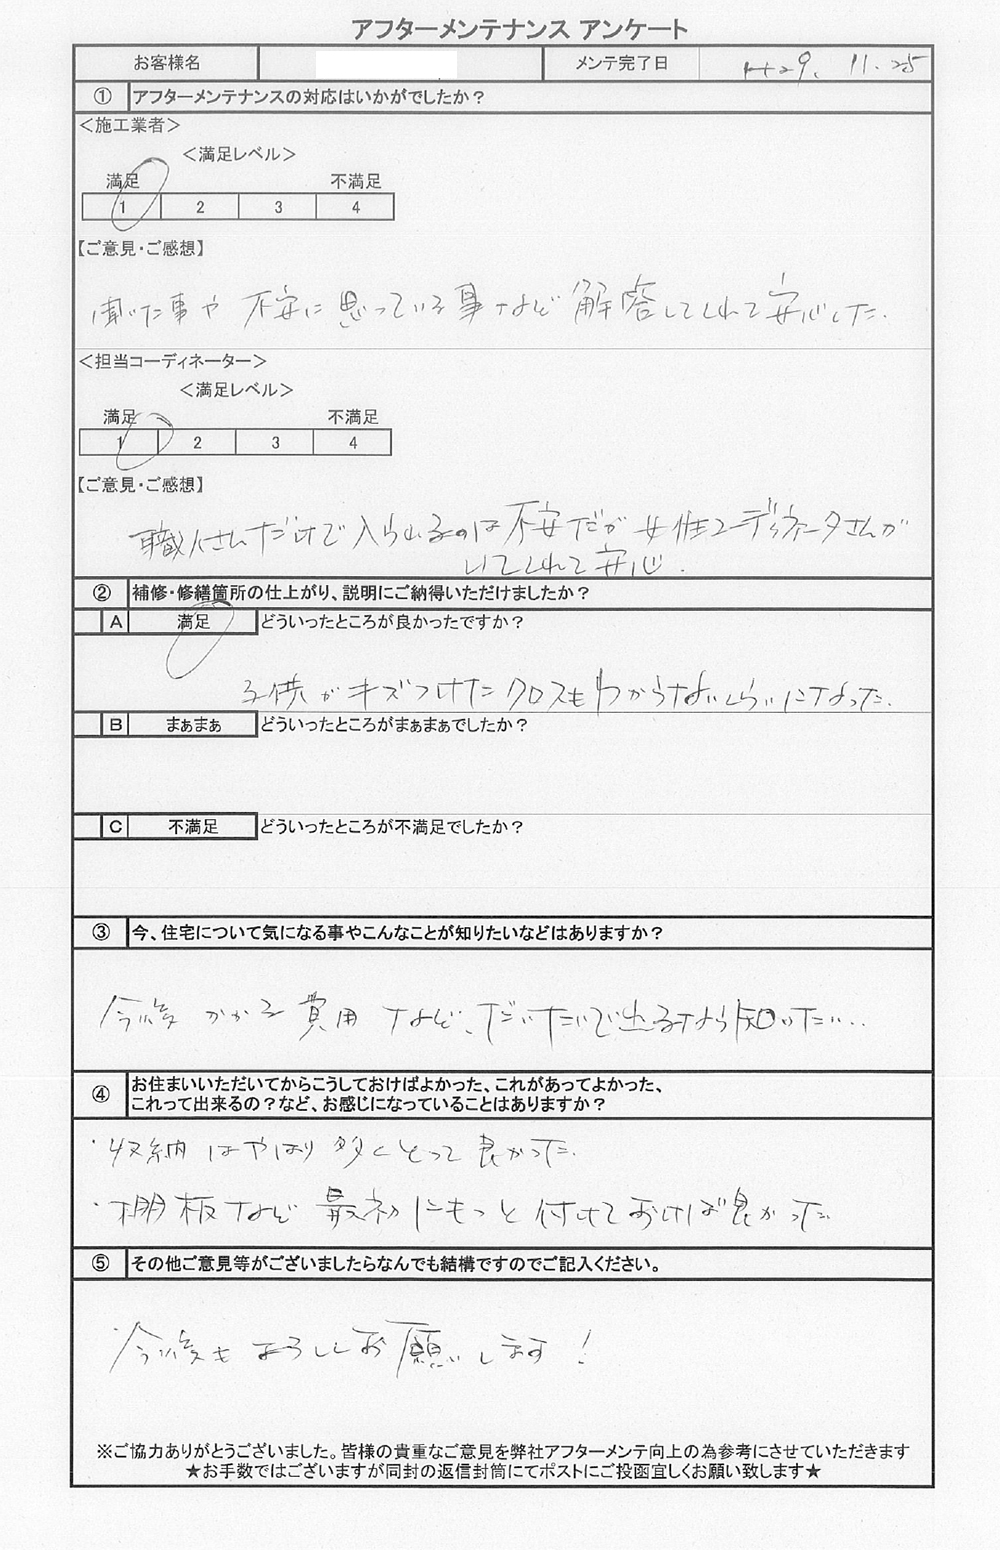 アフターメンテナンス アンケート
お客様名 メンテ完了日 H29. 11. 25
① アフターメンテナンスの対応はいかがでしたか？
＜施工業者＞
＜満足レベル＞
満足 不満足
1 2 3 4
【ご意見・ご感想】
聞いた事や 不安に思っている事など 解答してくれて安心した.
＜担当コーディネーター＞
＜満足レベル＞
満足 不満足
1 2 3 4
【ご意見・ご感想】
職人さんだけで入られるのは不安だが女性コーディネータさんが
いてくれて安心.
② 補修・修繕箇所の仕上がり、説明にご納得いただけましたか？
A 満足 どういったところが良かったですか？
子供がキズつけたクロスもわからないくらいになった.
B まぁまぁ どういったところがまぁまぁでしたか？
C 不満足 どういったところが不満足でしたか？
③ 今、住宅について気になる事やこんなことが知りたいなどはありますか？
今後かかる費用など、だいたいで出るなら知りたい..
④ お住まいいただいてからこうしておけばよかった、これがあってよかった、
これって出来るの？など、お感じになっていることはありますか？
・収納はやはり多くとって良かった.
・棚板など最初にもっと付けておけば良かった
⑤ その他ご意見等がございましたらなんでも結構ですのでご記入ください。
・今後もよろしくお願いします！
※ご協力ありがとうございました。皆様の貴重なご意見を弊社アフターメンテ向上の為参考にさせていただきます
★お手数ではございますが同封の返信封筒にてポストにご投函宜しくお願い致します★